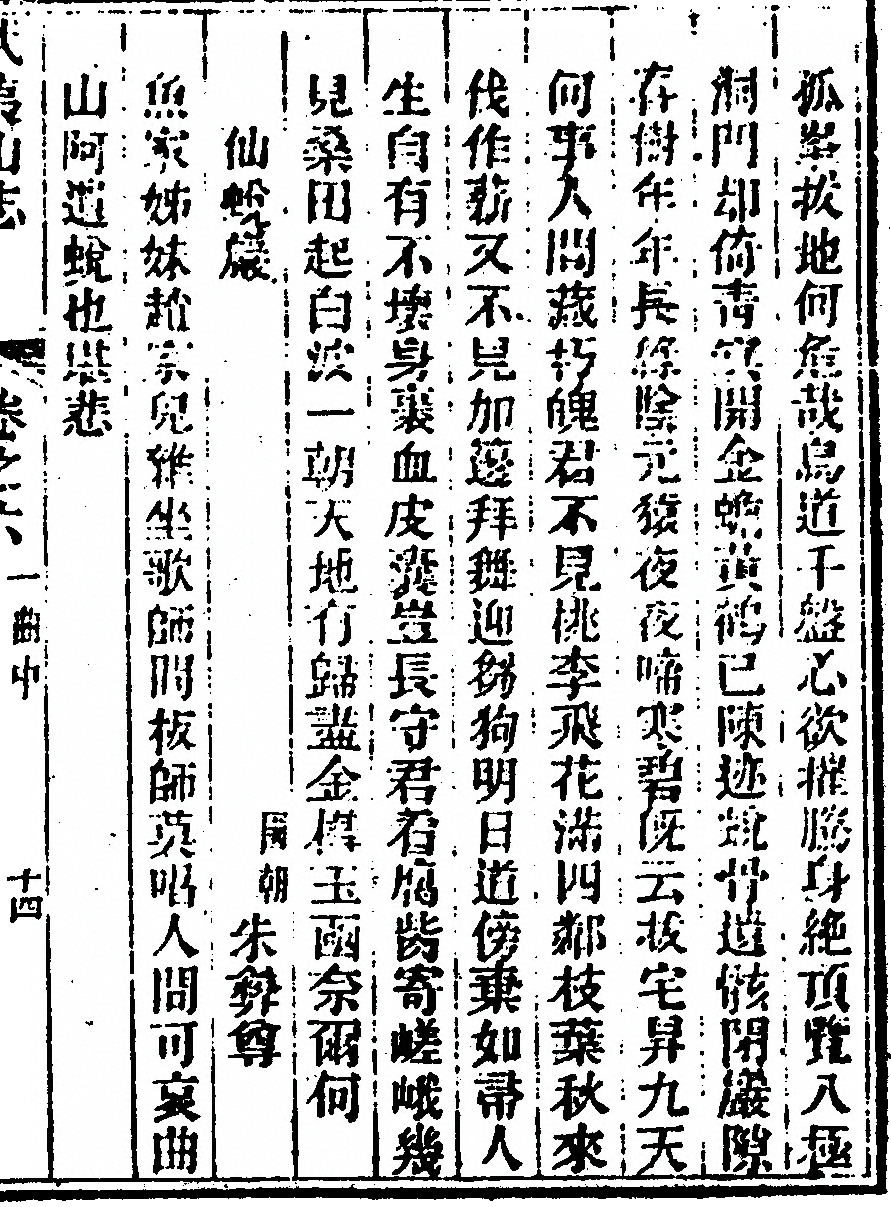 孤峯拔地何危哉鳥道千盤心欲摧騰身絶頂覽八極
洞門却倚青冥開金蟾黄鶴已陳迹蛻骨遺骸閉巖隙
存樹年年長綠陰元猿夜夜啼寒碧旣云拔宅昇九天
何事人間藏朽魄君不見桃李飛花滿四鄰枝葉秋來
伐作薪又不見加籩拜舞迎芻狗明日道傍棄如帚人
生自有不壞身裹血皮囊豈長守君看腐胔寄嵯峨幾
見桑田起白波一朝天地有歸盡金棺玉函奈爾何
仙蛻巖
國朝朱彝尊
魚家姊妹趙家兒雜坐歌師間板師莫唱人間可哀曲
山阿遺蛻也堪悲
武夷山志
卷之六
一曲中
十四